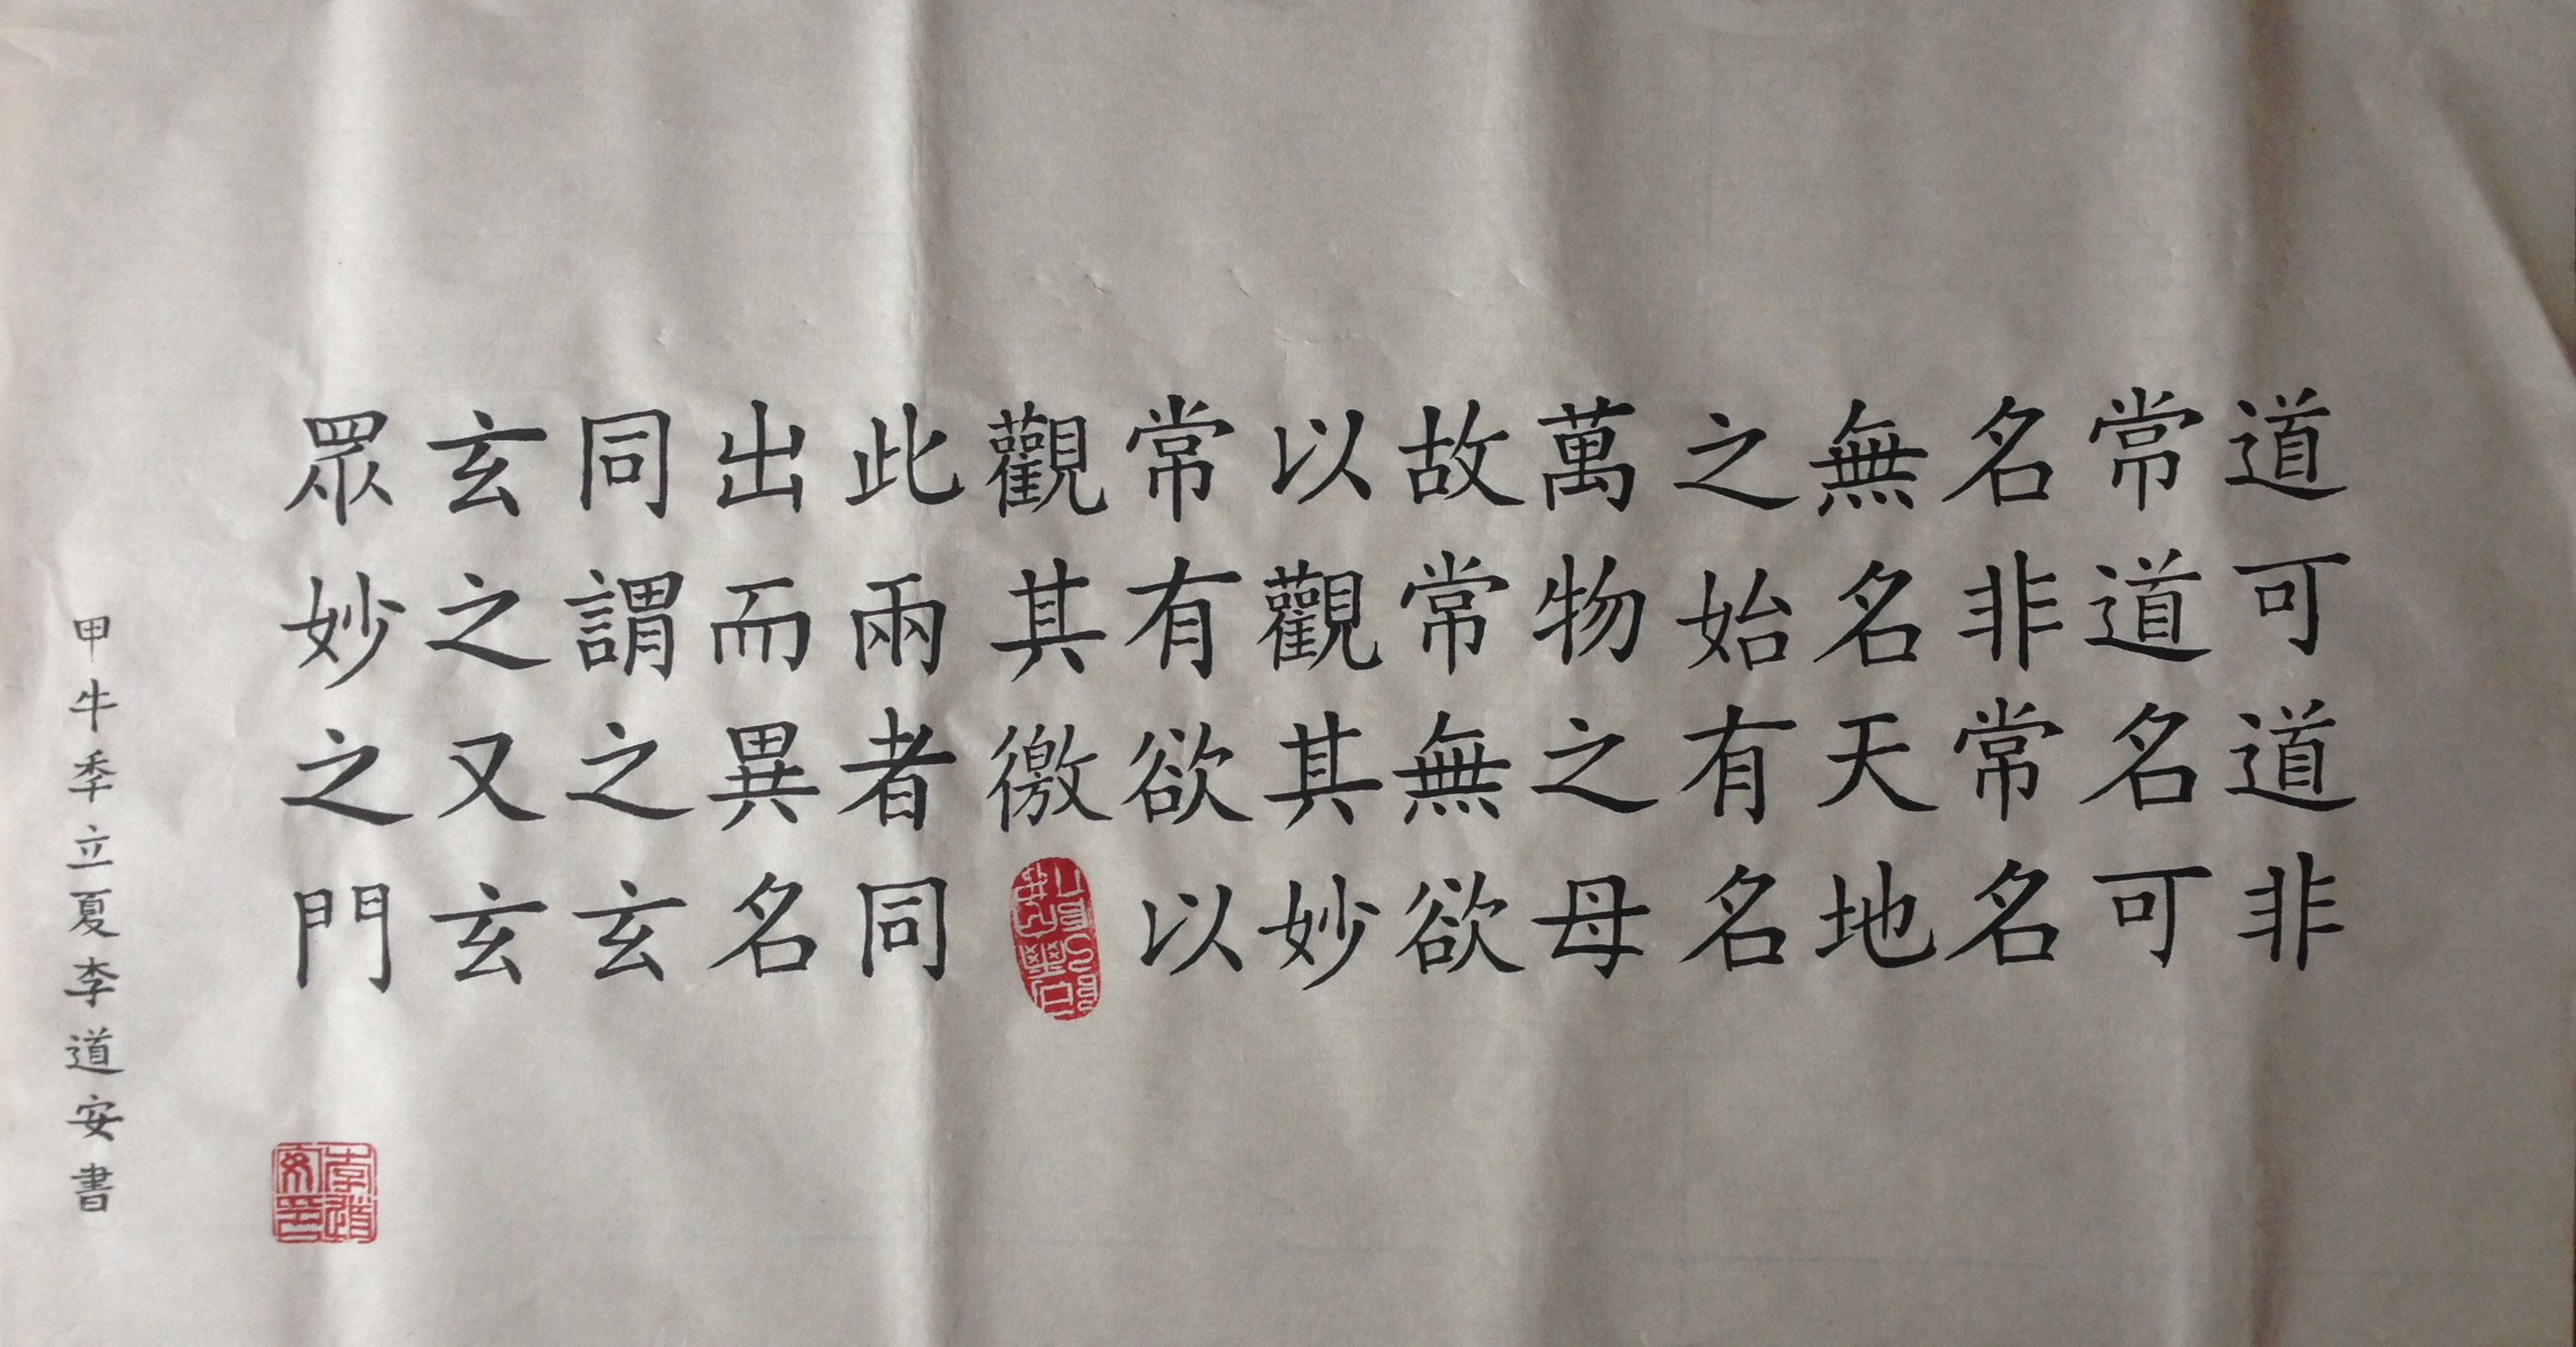 道可道非
常道名可
名非常名
無名天地
之始有名
萬物之母
故常無欲
以觀其妙
常有欲以
觀其徼
此兩者同
出而異名
同謂之玄
玄之又玄
眾妙之門
甲牛秊立夏李道安書
李道安印